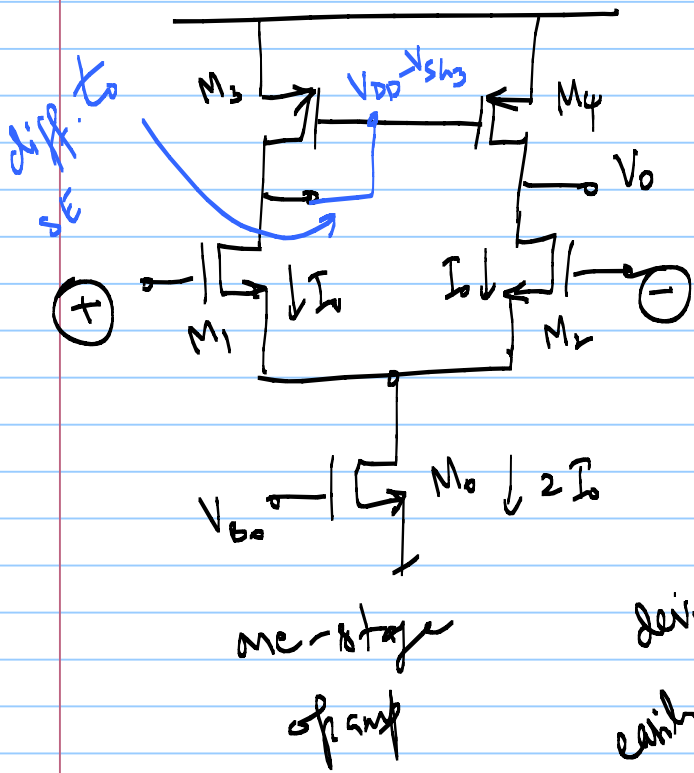 diff. to
SE
M3
VDD-VSG3
M4
Vo
+
M1
I0
I0
M2
-
VB0
M0
2I0
one-stage
opamp